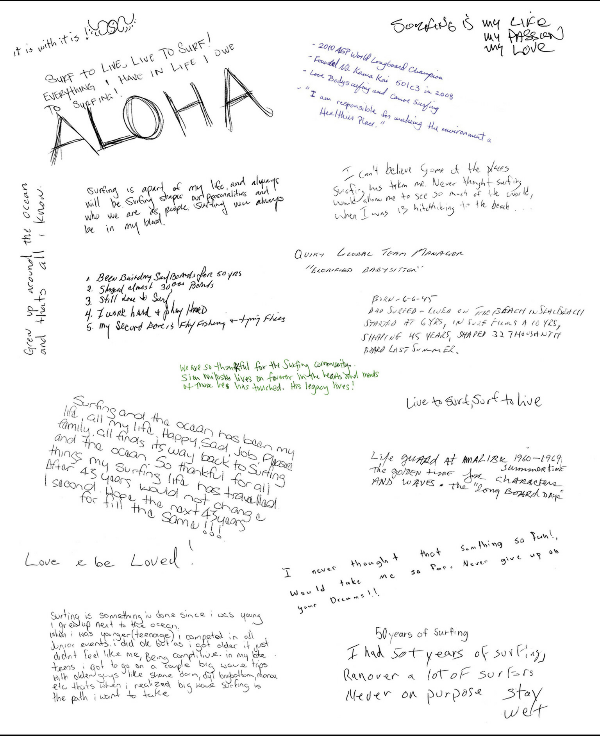 it is with it is!
SURF TO LIVE, LIVE TO SURF!
EVERYTHING I HAVE IN LIFE I OWE
TO SURFING!
ALOHA
SURFING is my LIFE
my PASSION
my LOVE
- 2010 ASP World Longboard Champion
- Founded Na Kama Kai 501c3 in 2008
- Love Bodysurfing and Canoe Surfing
- "I am responsible for making the environment a
Healthier Place."
Grew up around the ocean
and thats all i know
Surfing is apart of my life and always
will be Surfing shapes our personalities and
who we are as people. Surfing will always
be in my blood.
I can't believe some of the places
Surfing has taken me. Never thought surfing
would allow me to see so much of the world,
when I was hitchhiking to the beach...
1. Been Building Surf Boards for 50 yrs
2. Shaped almost 30,000 Boards
3. Still love to Surf
4. I work hard & play HARD
5. my Second Love is Fly Fishing & tying Flies
QUIKY GLOBAL TEAM MANAGER
"GLORIFIED BABYSITTER"
BORN - 6-6-45
DAD SURFED - LIVED ON THE BEACH IN SEAL BEACH
STARTED AT 6 YRS, IN SURF FILMS @ 10 YRS,
SHAPING 45 YEARS, SHAPED 32 THOUSANTH
BOARD LAST SUMMER.
We are so thankful for the Surfing community.
Sion lives on forever in the hearts and minds
of those he has touched. His legacy lives!
Surfing and the ocean has been my
life, all my life. Happy, Sad, Job, Please
family, all finds its way back to Surfing
and the ocean. So thankful for all
things my Surfing life has
After 43 years would not change
1 second! Hope the next 43 years
for fill the same!!!
Live to surf, Surf to live
Life guard AT MALIBU 1960-1969,
The golden time for summertime characters
AND WAVES. The "Long BOARD DAYS"
Love & be Loved!
I never thought that somthing so fun!,
Would take me so far. Never give up on
your Dreams!!
Surfing is something iv done since i was young
I grew up next to the ocean.
when i was yonger (teenage) i competed in all
Junior events i did ok but as i got older it just
didnt feel like me, Being compitive. in my late
teens i got to go on a couple big wave trips
with older guys like shane dorian,
etc thats when i realized big wave surfing is
the path i want to take
50 years of Surfing
I had 50+ years of surfing,
Ran over a lot of surfers
Never on purpose stay
wet